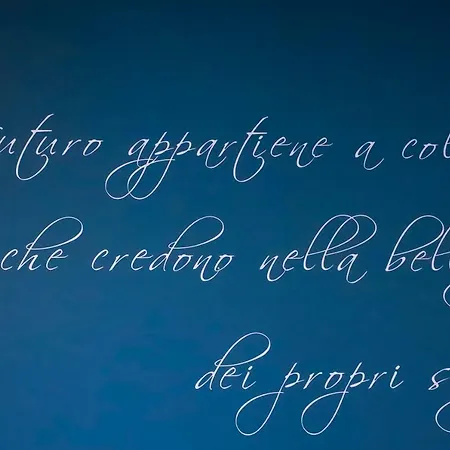 futuro appartiene a col
che credono nella bell
dei propri s